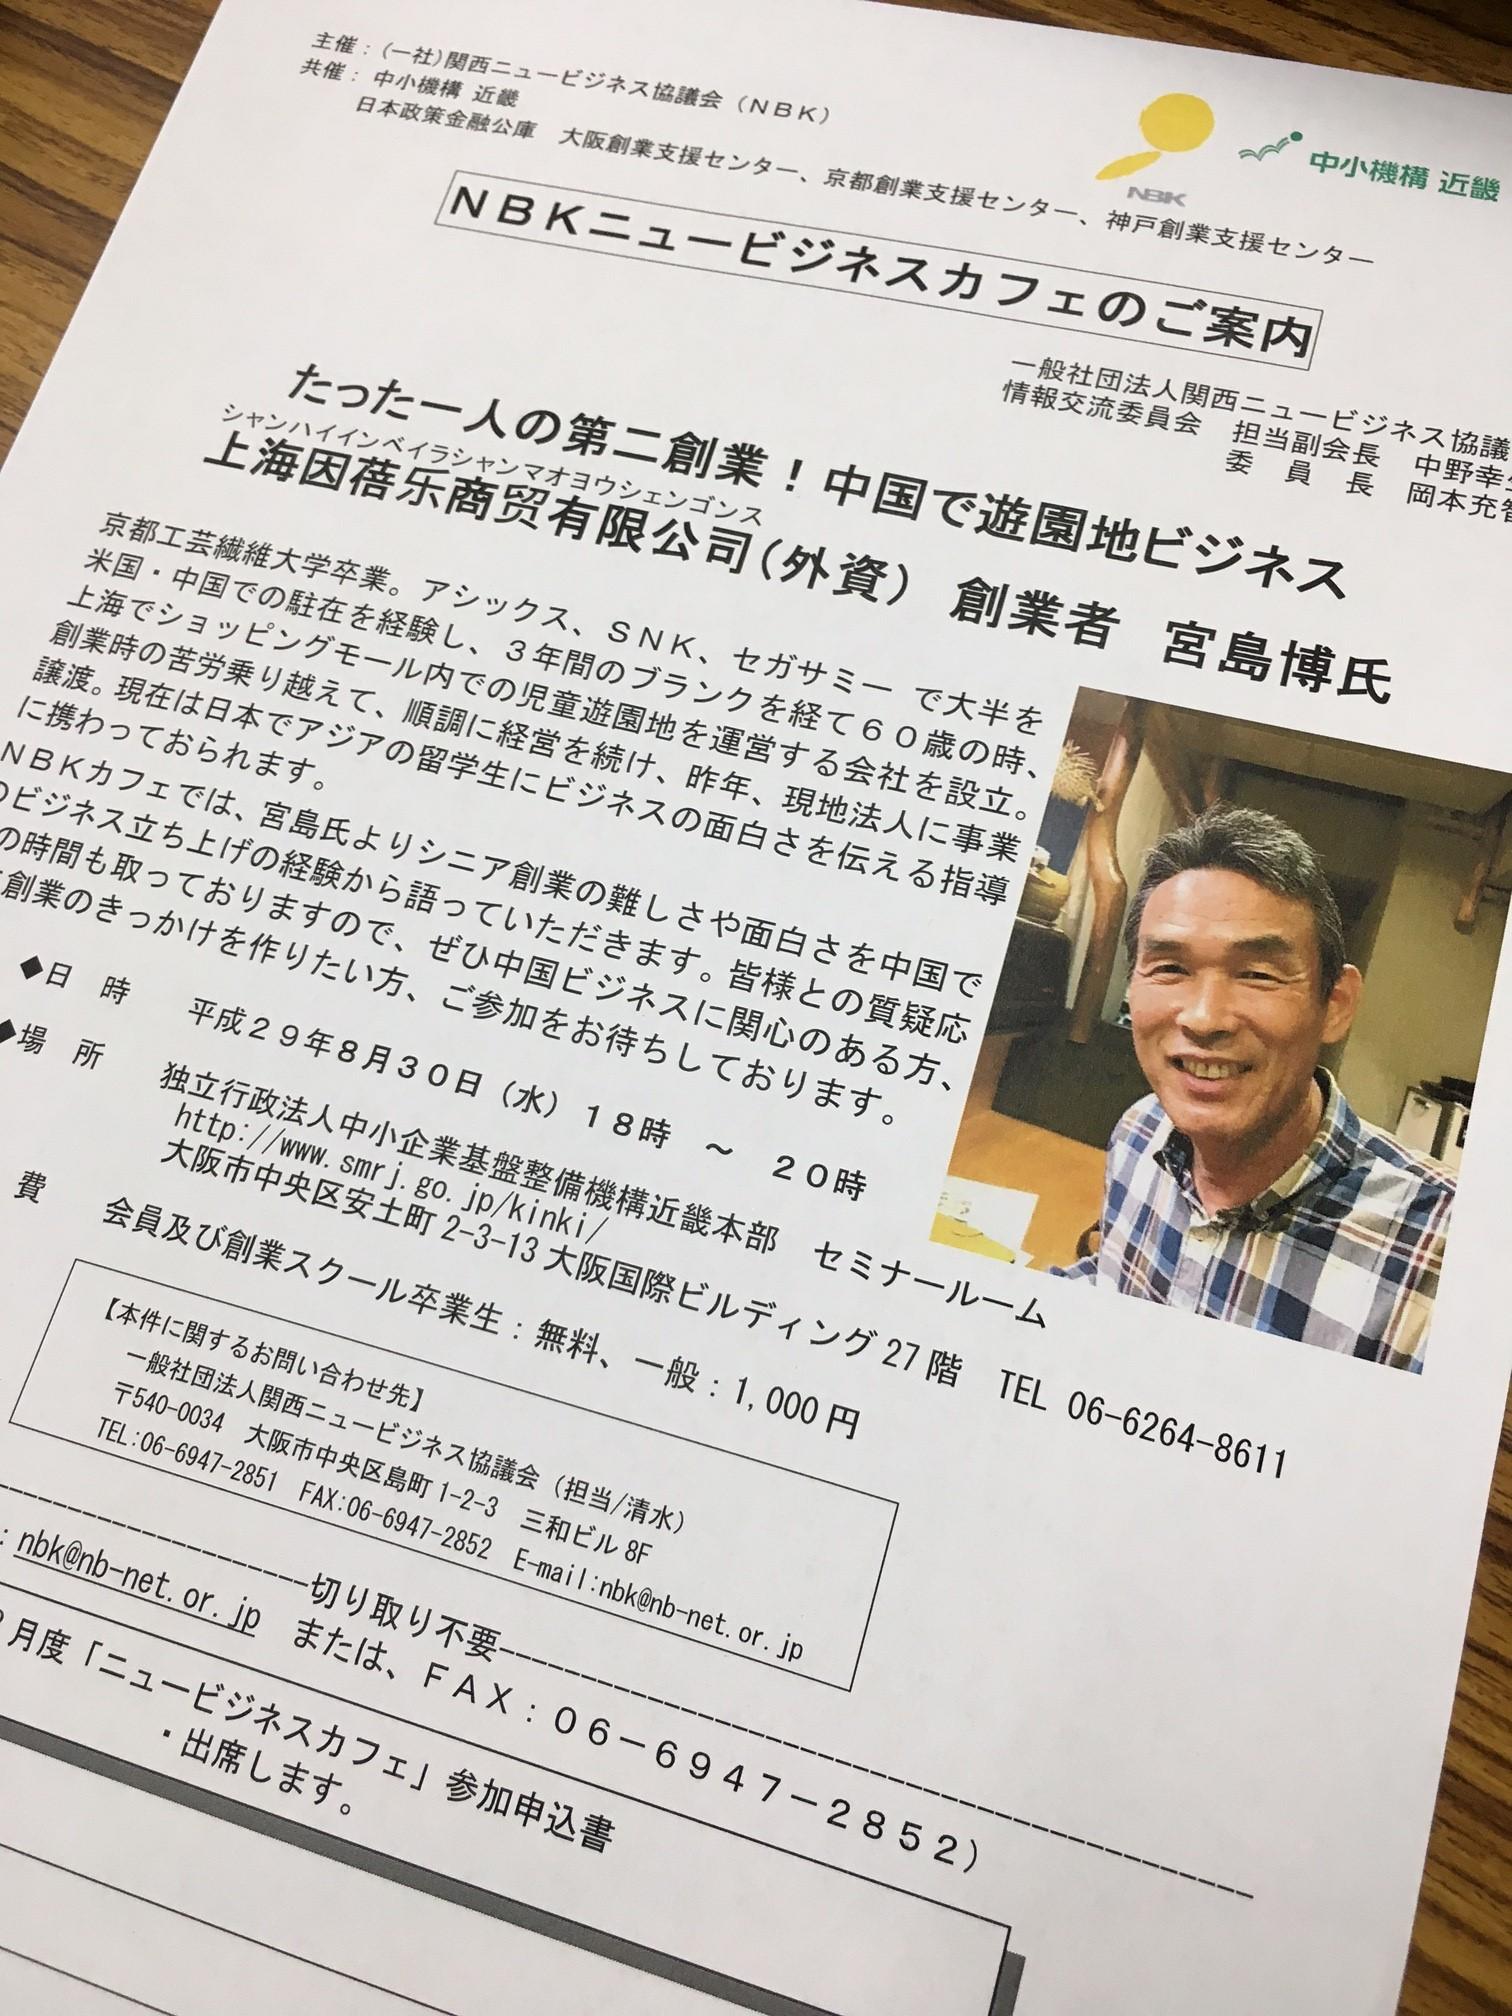 主催：(一社)関西ニュービジネス協議会（ＮＢＫ）
共催： 中小機構 近畿
日本政策金融公庫　大阪創業支援センター、京都創業支援センター、神戸創業支援センター
NBK
中小機構 近畿
ＮＢＫニュービジネスカフェのご案内
一般社団法人関西ニュービジネス協議
情報交流委員会　担当副会長　中野幸
委　員　長　岡本充智
たった一人の第二創業！中国で遊園地ビジネス
シャンハイインベイラシャンマオヨウシェンゴンス
上海因蓓乐商贸有限公司（外資）　創業者　宮島博氏
京都工芸繊維大学卒業。アシックス、ＳＮＫ、セガサミー で大半を
米国・中国での駐在を経験し、３年間のブランクを経て６０歳の時、
上海でショッピングモール内での児童遊園地を運営する会社を設立。
創業時の苦労乗り越えて、順調に経営を続け、昨年、現地法人に事業
譲渡。現在は日本でアジアの留学生にビジネスの面白さを伝える指導
に携わっておられます。
ＮＢＫカフェでは、宮島氏よりシニア創業の難しさや面白さを中国で
のビジネス立ち上げの経験から語っていただきます。皆様との質疑応
の時間も取っておりますので、ぜひ中国ビジネスに関心のある方、
創業のきっかけを作りたい方、ご参加をお待ちしております。
◆日　時　　平成２９年８月３０日（水）１８時　～　２０時
◆場　所　　独立行政法人中小企業基盤整備機構近畿本部　セミナールーム
http://www.smrj.go.jp/kinki/
大阪市中央区安土町 2-3-13 大阪国際ビルディング 27 階　TEL 06-6264-8611
費　　会員及び創業スクール卒業生：無料、一般：1,000 円
【本件に関するお問い合わせ先】
一般社団法人関西ニュービジネス協議会（担当/清水）
〒540-0034　大阪市中央区島町 1-2-3　三和ビル 8F
TEL:06-6947-2851　FAX:06-6947-2852　E-mail:nbk@nb-net.or.jp
切り取り不要
: nbk@nb-net.or.jp　または、ＦＡＸ：０６－６９４７－２８５２）
月度「ニュービジネスカフェ」参加申込書
・出席します。